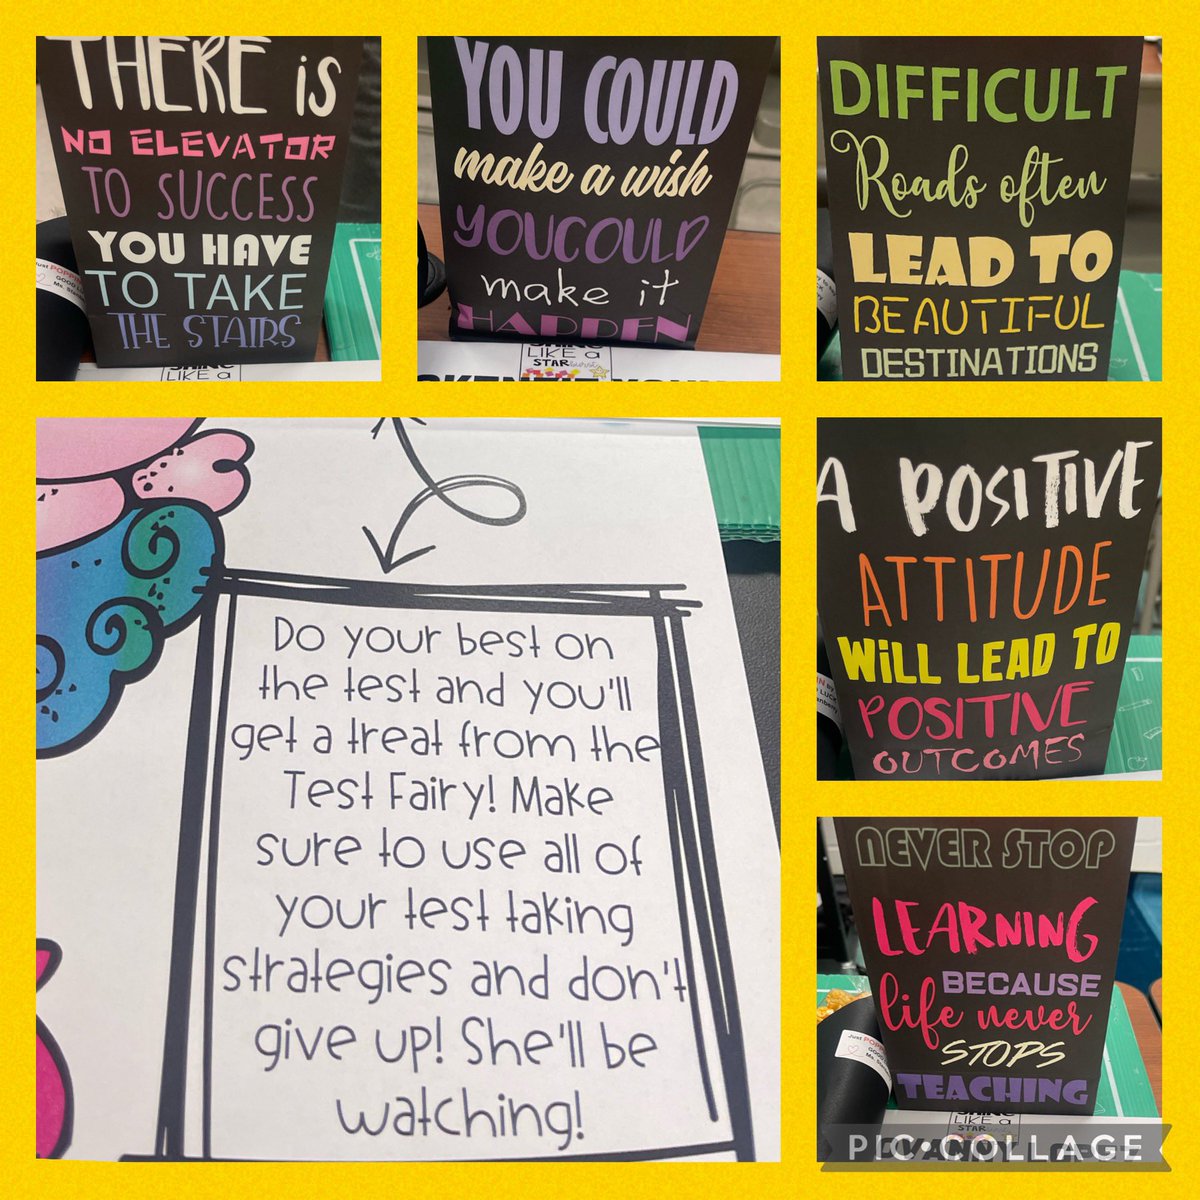 THERE is
NO ELEVATOR
TO SUCCESS
YOU HAVE
TO TAKE
THE STAIRS
Just POPPIN
GOOD
Ms.
LIKE A
YOU COULD
make a wish
YOUCOULD
make it
HAPPEN
SHINE
LIKE A
STARburst
DIFFICULT
Roads often
LEAD TO
BEAUTIFUL
DESTINATIONS
Do your best on
the test and you'll
get a treat from the
Test Fairy! Make
sure to use all of
your test taking
strategies and don't
give up! She'll be
watching!
A POSITIVE
ATTITUDE
WiLL LEAD TO
POSITIVE
OUTCOMES
NEVER STOP
LEARNING
BECAUSE
life never
STOPS
TEACHING
Just POPPIN
GOOD
Ms.
SHINE
LIKE A
STARburst
PIC•COLLAGE